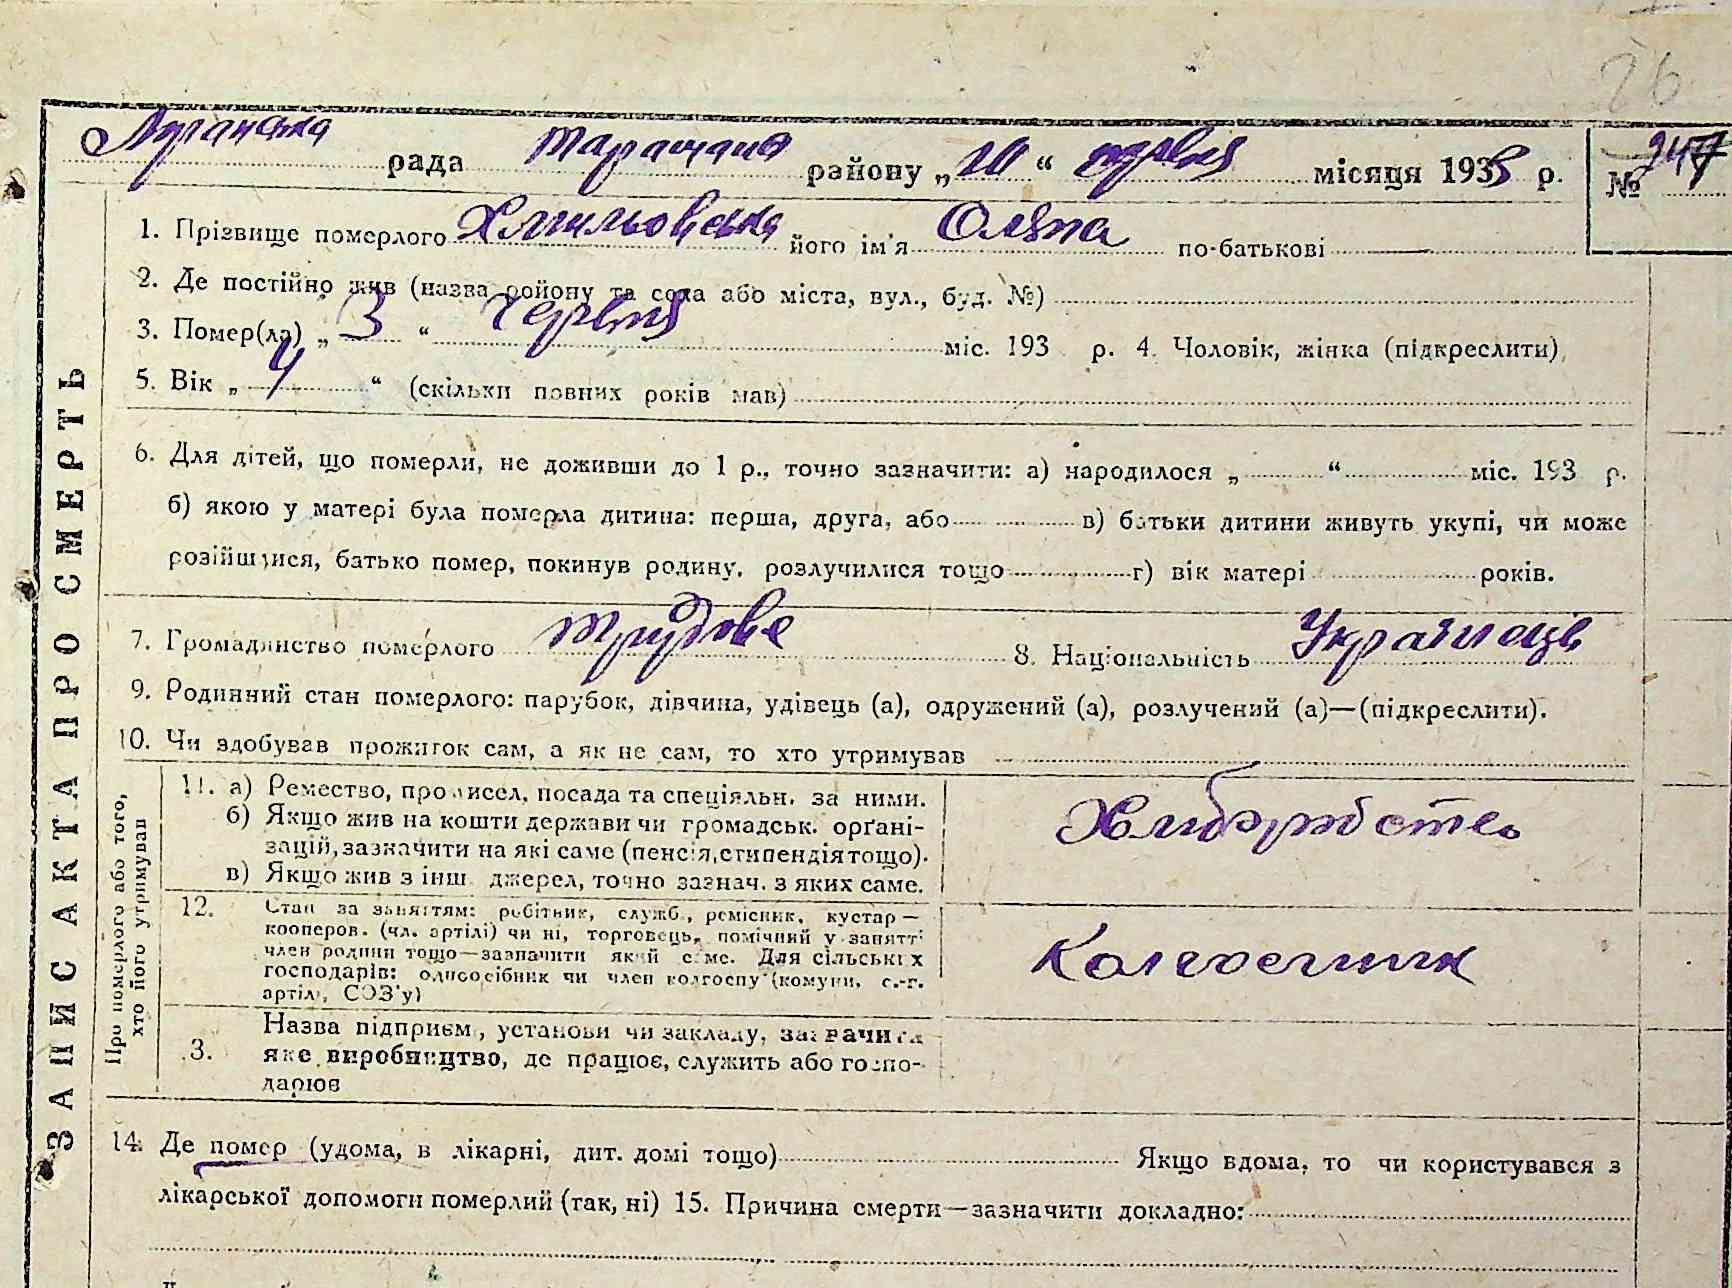 26
Луганська рада Таращана району „10“ червня місяця 1933 р. № 247
1. Прізвище померлого Хмильовська його ім'я Оляна по-батькові
2. Де постійно жив (назва району та села або міста, вул., буд. №)
3. Помер(ла) „3“ Червня міс. 193 р. 4. Чоловік, жінка (підкреслити)
5. Вік „4“ (скільки повних років мав)
6. Для дітей, що померли, не доживши до 1 р., точно зазначити: а) народилося „ “ міс. 193 р.
б) якою у матері була померла дитина: перша, друга, або в) батьки дитини живуть укупі, чи може
розійшлися, батько помер, покинув родину, розлучилися тощо г) вік матері років.
7. Громадянство померлого трудове 8. Національність Українець
9. Родинний стан померлого: парубок, дівчина, удівець (а), одружений (а), розлучений (а)—(підкреслити).
10. Чи здобував прожиток сам, а як не сам, то хто утримував
ЗАПИС АКТА ПРО СМЕРТЬ
Про померлого або того,
хто його утримував
11. а) Ремество, промисел, посада та спеціяльн. за ними.
б) Якщо жив на кошти держави чи громадськ. орґані-
зацій, зазначити на які саме (пенсія, стипендія тощо).
в) Якщо жив з інш. джерел, точно зазнач. з яких саме.
Хлиборобство
12. Стан за заняттям: робітник, служб., ремісник, кустар—
кооперов. (чл. артілі) чи ні, торговець, помічний у занятті
член родини тощо—зазначити який саме. Для сільських
господарів: одноосібник чи член колгоспу (комуни, с.-г.
артілі, СОЗ'у)
Колгоспник
13. Назва підприєм., установи чи закладу, зазначити
яке виробництво, де працює, служить або госпо-
дарює
14. Де помер (удома, в лікарні, дит. домі тощо) Якщо вдома, то чи користувався з
лікарської допомоги померлий (так, ні) 15. Причина смерти—зазначити докладно: